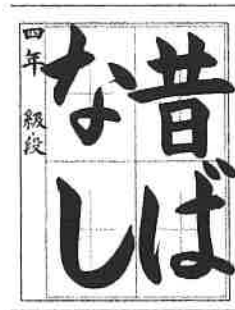 昔ば
なし
四年 級段